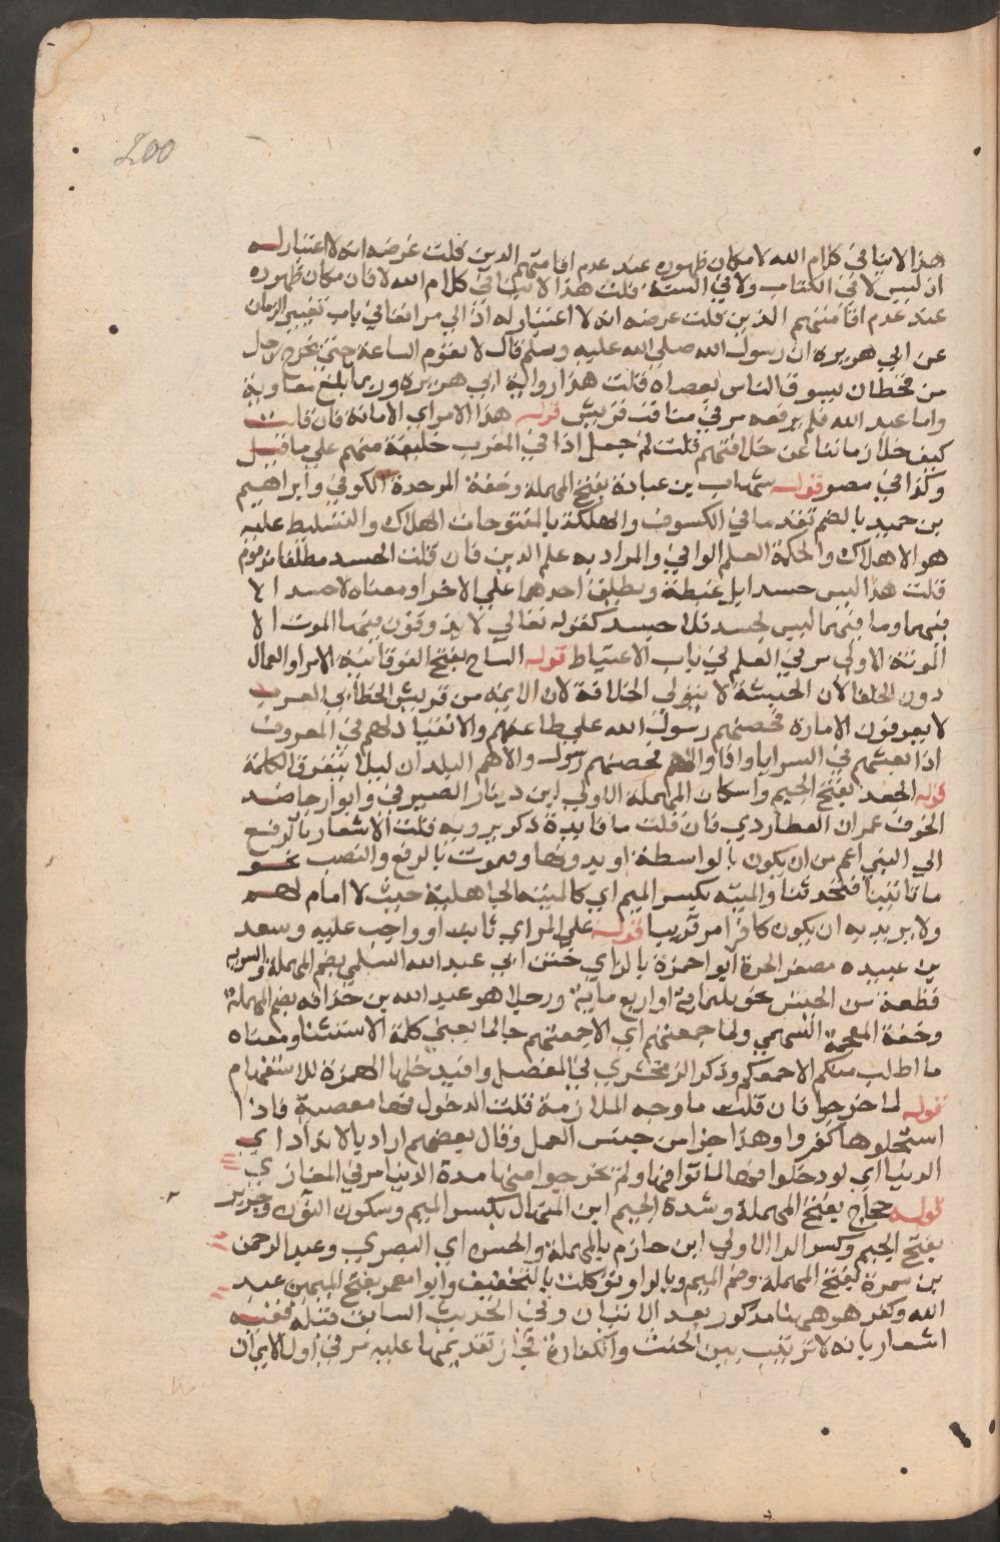 200
هذا لا ينافي كلام الله لامكان ظهوره عند عدم اقامتهم الدين قلت غرضه انه لا اعتبار له
اذ ليس لا في الكتاب ولا في السنة قلت هذا لا ينافي كلام الله لا فان مكان ظهوره
عند عدم اقامتهم الدين قلت غرضه انه لا اعتبار له اذ الي مر انفا في باب تغيير الزمان
عن ابي هريرة ان رسول الله صلي الله عليه وسلم قال لا تقوم الساعة حتي يخرج رجل
من قحطان يسوق الناس بعصاه قلت هذا رواية ابي هريرة وربما بلغ معاوية
واما عبد الله فلم يرفعه مر في مناقب قريش قوله هذا الامر اي الامامة فان قلت
كيف خلا زماننا عن خلافتهم قلت لم خيل اذا في المغرب خليفة منهم علي ما قيل
وكذا في مصر قوله شهاب بن عبادة بفتح المهملة وخفة الموحدة الكوفي وابراهيم
بن حميد بالضم تقدما في الكسوف والهلكة بالمفتوحات الهلاك والتسليط عليه
هو الاهلاك والحكمة العلم الوافي والمراد به علم الدين فان قلت الحسد مطلقا مذموم
قلت هذا ليس حسدا بل غبطة ويطلق احدهما علي الاخر او معناه لا حسد الا
فيهما وما فيهما ليس بحسد فلا حسد كقوله تعالي لا يذوقون فيها الموت الا
الموتة الاولي مر في العلم في باب الاغتباط قوله الساح بفتح الفوقانية الامرا والعمال
دون الخلفا لان الحبشة لا تتولي الخلافة لان الايمة من قريش الخطابي العرب
لا يعرفون الامارة فحضهم رسول الله علي طاعتهم والانقياد لهم في المعروف
اذا بعثهم في السرايا واذا ولاهم فحضهم رسول ولاهم البلدان ليلا تتفرق الكلمة
قوله الجعد بفتح الجيم واسكان المهملة الاولي ابن دينار الصيرفي وابو رجا ضد
الخوف عمران العطاردي فان قلت ما فايدة ذكر يرويه قلت الاشعار بالرفع
الي النبي اعم من ان يكون بالواسطة او بدونها وفيموت بالرفع والنصب نحو
ما تاتينا فتحدثنا والميتة بكسر الميم اي كالميتة الجاهلية حيث لا امام لهم
ولا يريد به ان يكون كافرا مر قريبا قوله علي المراي ثابت او واجب عليه وسعد
بن عبيدة مصغر الحرة ابو حمزة بالزاي ختن ابي عبد الله السلمي بضم المهملة والسرية
قطعة من الجيش نحو ثلثماية او اربع ماية ورجلا هو عبد الله بن حذافة بضم المهملة
وخفة المعجمة السهمي ولما جمعتهم اي الا جمعتهم جا لما بمعني كلمة الاستثنا ومعناه
ما اطلب منكم الا جمعكم وذكر الزمخشري في المفصل وافيد خلها الهمزة للاستفهام
قوله لما خرجوا فان قلت ما وجه الملازمة قلت الدخول فيها معصية فاذا
استحلوها كفروا وهذا جزا من جنس العمل وقال بعضهم اراد بالابد ابد اي
الدنيا اي لو دخلوا فيها لماتوا فيها ولم يخرجوا منها مدة الدنيا مر في المغازي
قوله حجاج بفتح المهملة وشدة الجيم ابن المنهال بكسر الميم وسكون النون وجرير
بفتح الجيم وكسر الرا الاولي ابن حازم بالمهملة والحسن اي البصري وعبد الرحمن
بن سمرة بفتح المهملة وضم الميم وبالرا ووكلت بالتخفيف وابو معمر بفتح الميمين عبد
الله وكفر هو ههنا مذكور بعد الاتيان وفي الحديث السابق قبله ففيه
اشعار بانه لا ترتيب بين الحنث والكفارة فجاز تقديمها عليه مر في اول الايمان